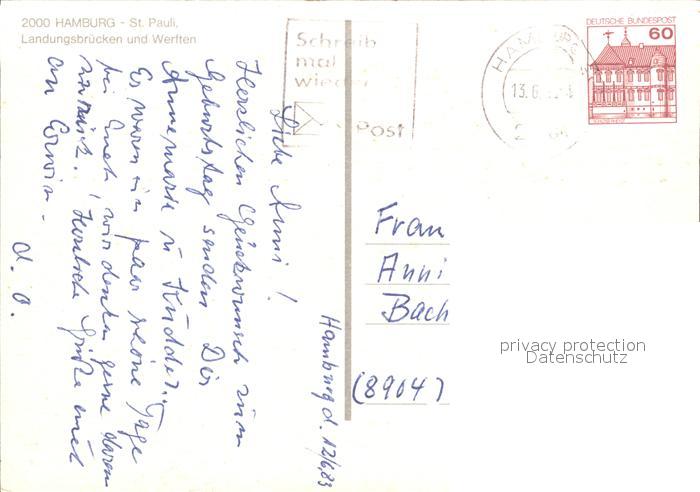 2000 HAMBURG - St. Pauli,
Landungsbrücken und Werften
Schreib
mal
wieder
Post
HAMBURG
13.6.
2
DEUTSCHE BUNDESPOST
60
Hamburg d. 12/6.83
Liebe Anni!
Herzlichen Glückwunsch zum
Geburtstag senden Dir
Annemarie u.
Es waren ein paar schöne Tage
bei Euch, wir denken gerne daran
zurück! Herzliche Grüße auch
an Erwin.
d. O.
Frau
Anni
Bach
(8904)
privacy protection
Datenschutz